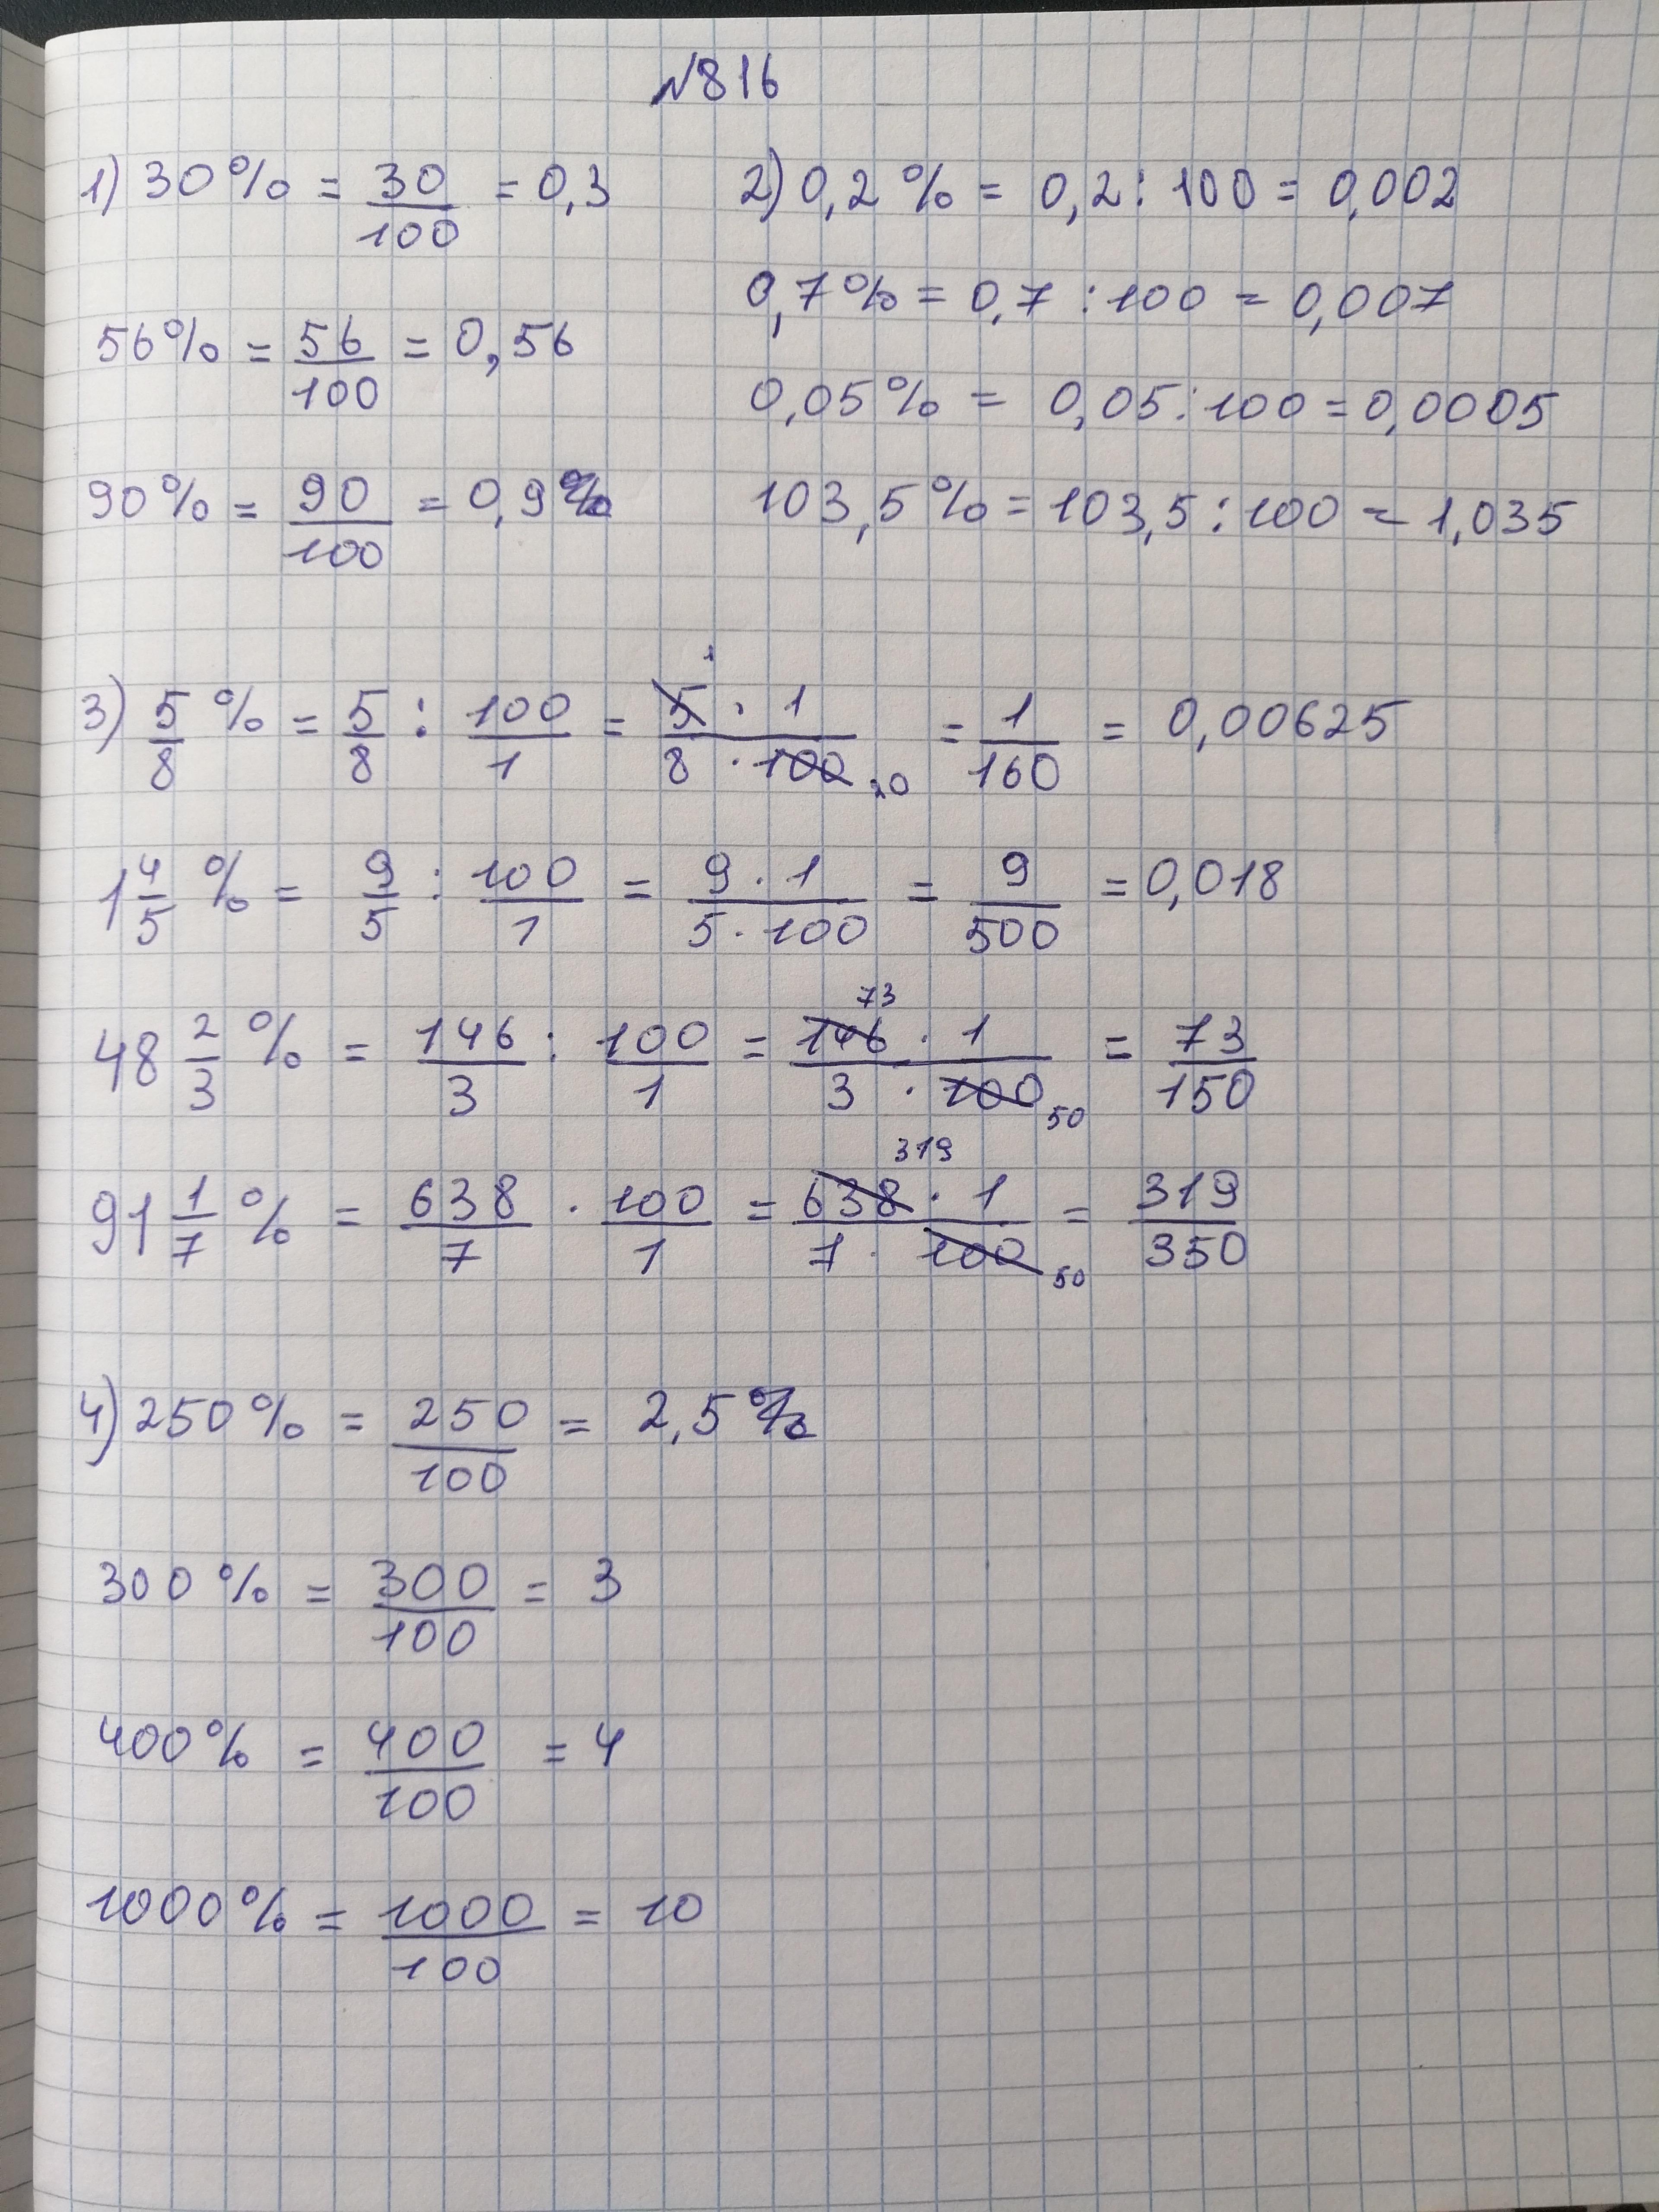 №816
1) 30% = 30/100 = 0,3
56% = 56/100 = 0,56
90% = 90/100 = 0,9
2) 0,2% = 0,2 : 100 = 0,002
0,7% = 0,7 : 100 = 0,007
0,05% = 0,05 : 100 = 0,0005
103,5% = 103,5 : 100 = 1,035
3) 5/8 % = 5/8 : 100/1 = 5 1 · 1 / 8 · 100 20 = 1/160 = 0,00625
1 4/5 % = 9/5 : 100/1 = 9 · 1 / 5 · 100 = 9/500 = 0,018
48 2/3 % = 146/3 : 100/1 = 146 73 · 1 / 3 · 100 50 = 73/150
91 1/7 % = 638/7 · 100/1 = 638 319 · 1 / 7 · 100 50 = 319/350
4) 250% = 250/100 = 2,5
300% = 300/100 = 3
400% = 400/100 = 4
1000% = 1000/100 = 10